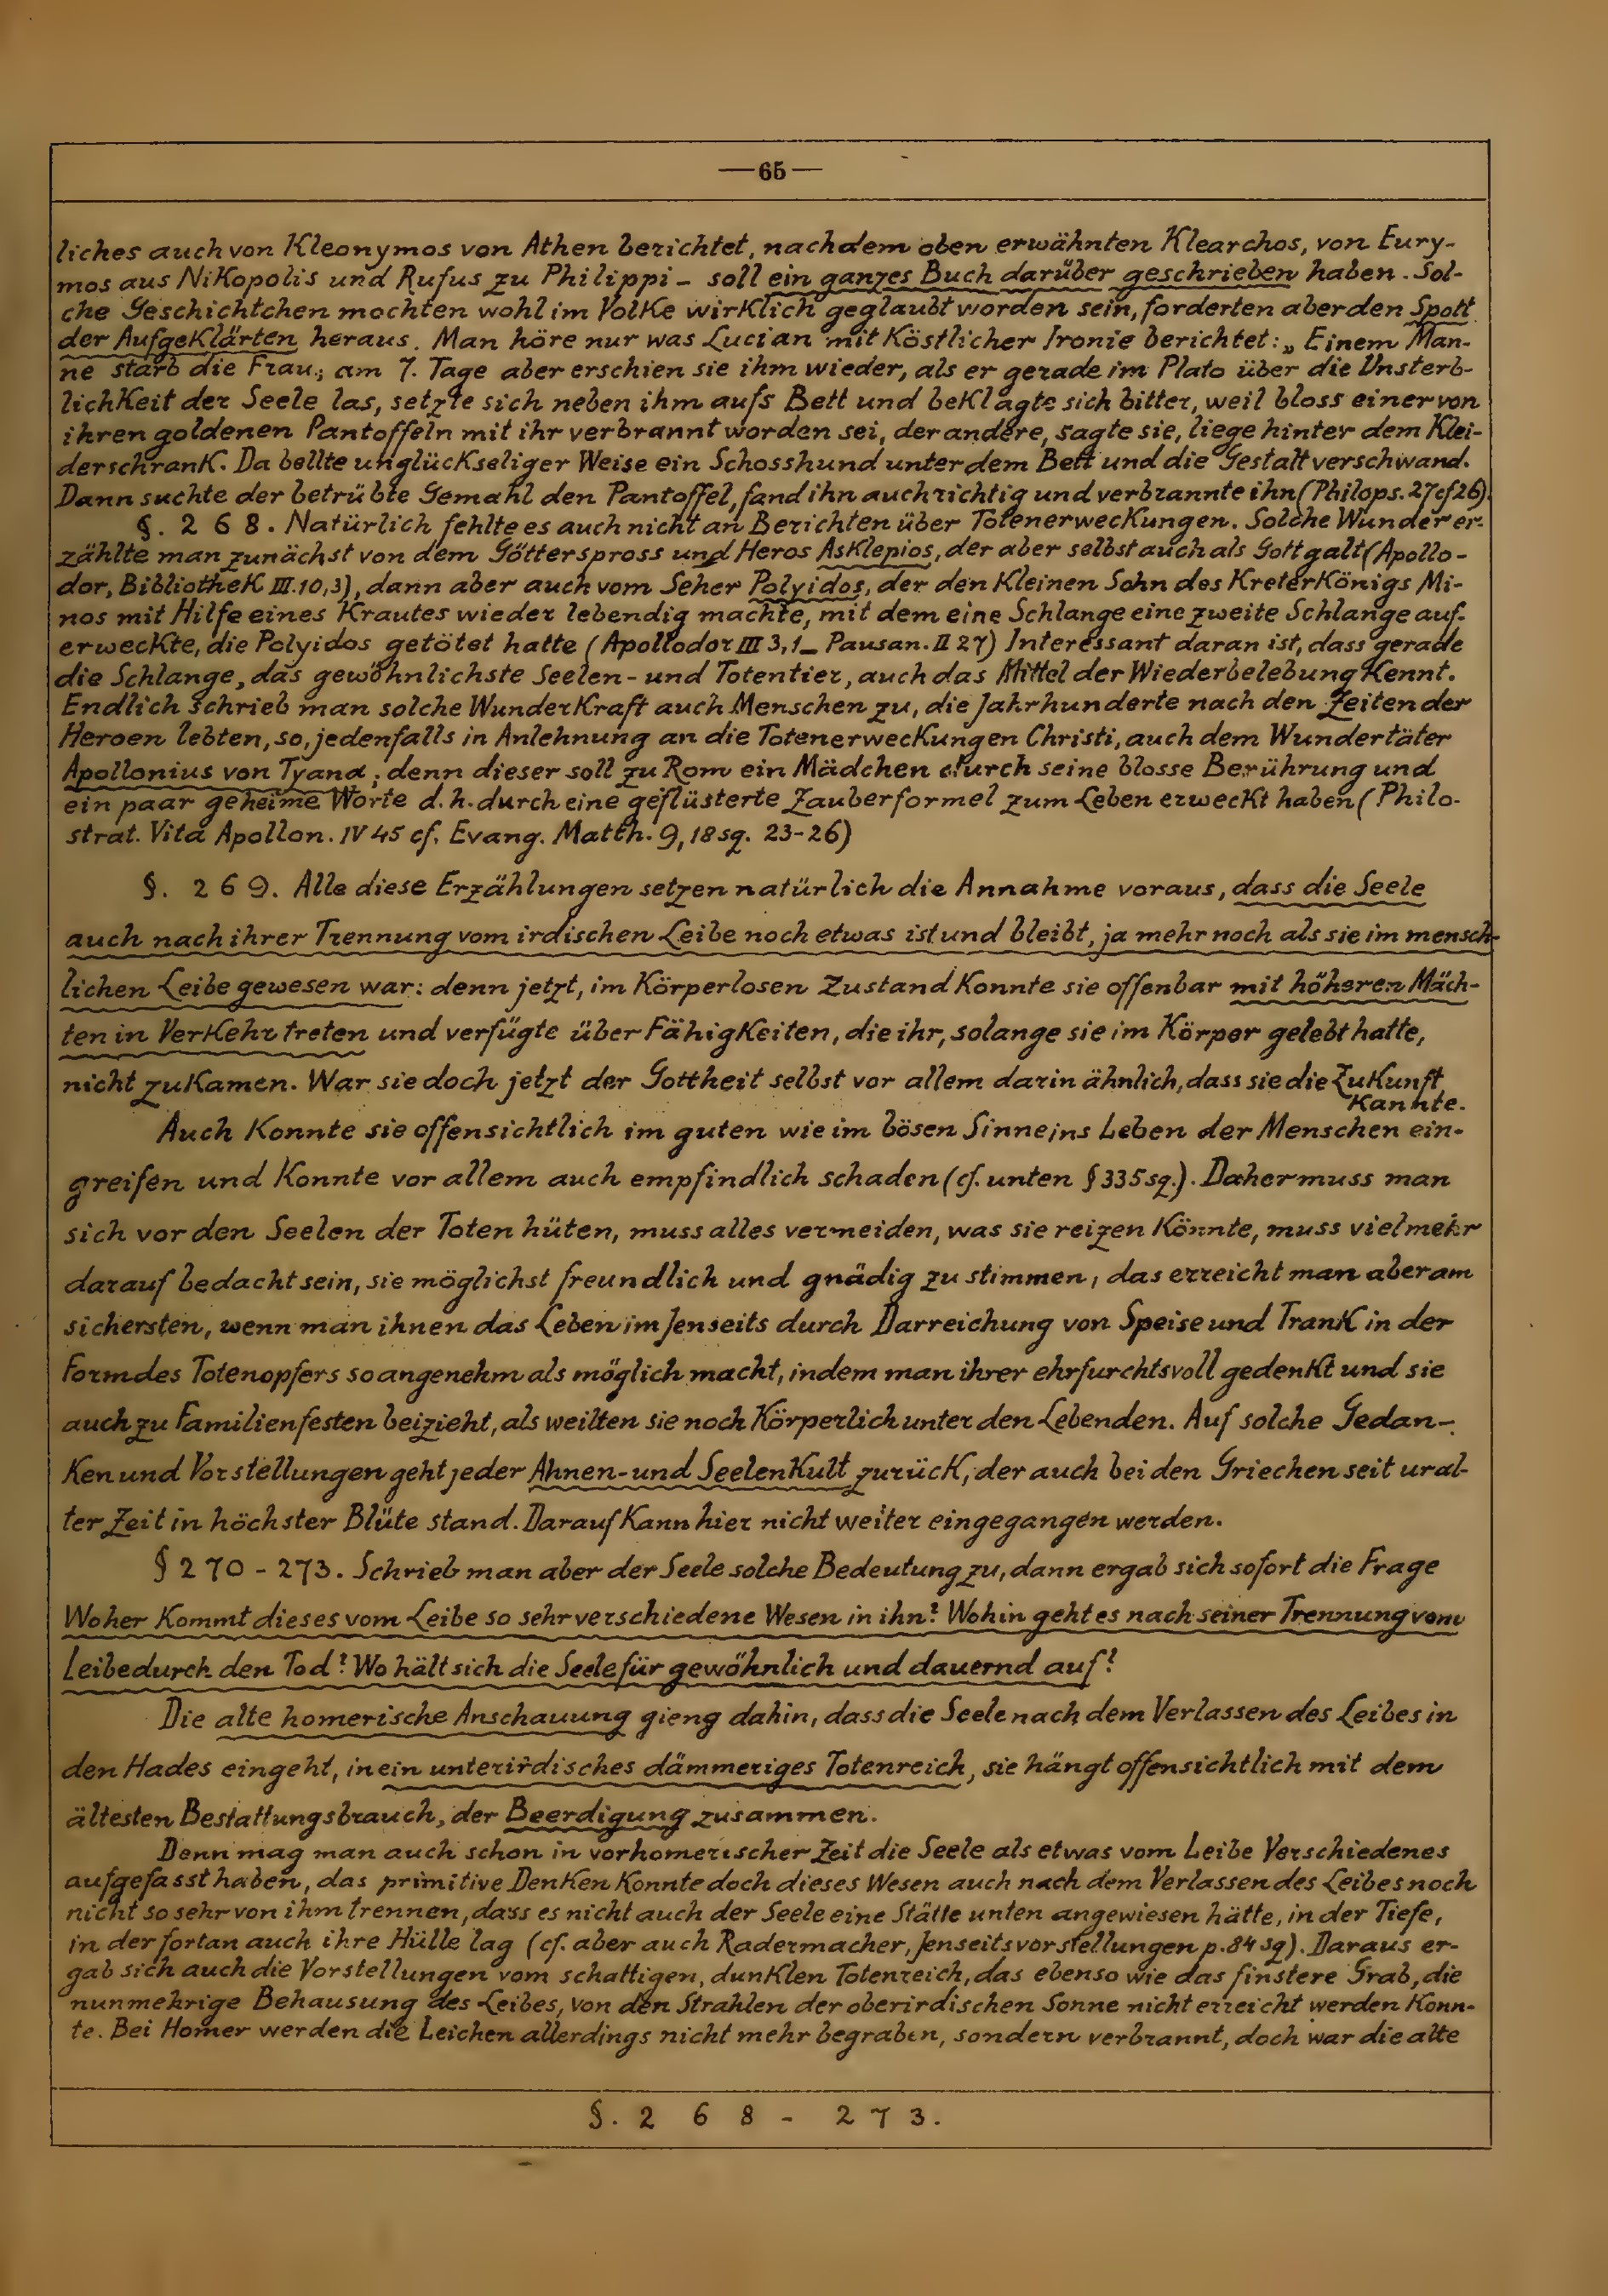 —65—
liches auch von Kleonymos von Athen berichtet, nachdem oben erwähnten Klearchos, von Eury-
mos aus Nikopolis und Rufus zu Philippi – soll ein ganzes Buch darüber geschrieben haben. Sol-
che Geschichtchen mochten wohl im Volke wirklich geglaubt worden sein, forderten aber den Spott
der Aufgeklärten heraus. Man höre nur was Lucian mit köstlicher Ironie berichtet: „Einem Man-
ne starb die Frau; am 7. Tage aber erschien sie ihm wieder, als er gerade im Plato über die Unsterb-
lichkeit der Seele las, setzte sich neben ihm aufs Bett und beklagte sich bitter, weil bloss einer von
ihren goldenen Pantoffeln mit ihr verbrannt worden sei, der andere, sagte sie, liege hinter dem Klei-
derschrank. Da bellte unglückseliger Weise ein Schosshund unter dem Bett und die Gestalt verschwand.
Dann suchte der betrübte Gemahl den Pantoffel, fand ihn auch richtig und verbrannte ihn (Philops. 27 cf 26).
§. 268. Natürlich fehlte es auch nicht an Berichten über Totenerweckungen. Solche Wunder er-
zählte man zunächst von dem Götterspross und Heros Asklepios, der aber selbst auch als Gott galt (Apollo-
dor, Bibliothek III.10,3), dann aber auch vom Seher Polyidos, der den kleinen Sohn des Kreterkönigs Mi-
nos mit Hilfe eines Krautes wieder lebendig machte, mit dem eine Schlange eine zweite Schlange auf-
erweckte, die Polyidos getötet hatte (Apollodor III 3,1_ Pausan. II 27) Interessant daran ist, dass gerade
die Schlange, das gewöhnlichste Seelen- und Totentier, auch das Mittel der Wiederbelebung kennt.
Endlich schrieb man solche Wunderkraft auch Menschen zu, die Jahrhunderte nach den Zeiten der
Heroen lebten, so, jedenfalls in Anlehnung an die Totenerweckungen Christi, auch dem Wundertäter
Apollonius von Tyana; denn dieser soll zu Rom ein Mädchen durch seine blosse Berührung und
ein paar geheime Worte d. h. durch eine geflüsterte Zauberformel zum Leben erweckt haben (Philo-
strat. Vita Apollon. IV 45 cf. Evang. Matth. 9, 18 sq. 23-26)
§. 269. Alle diese Erzählungen setzen natürlich die Annahme voraus, dass die Seele
auch nach ihrer Trennung vom irdischen Leibe noch etwas ist und bleibt, ja mehr noch als sie im mensch-
lichen Leibe gewesen war: denn jetzt, im körperlosen Zustand konnte sie offenbar mit höheren Mäch-
ten in Verkehr treten und verfügte über Fähigkeiten, die ihr, solange sie im Körper gelebt hatte,
nicht zukamen. War sie doch jetzt der Gottheit selbst vor allem darin ähnlich, dass sie die Zukunft
kannte.
Auch konnte sie offensichtlich im guten wie im bösen Sinne ins Leben der Menschen ein-
greifen und konnte vor allem auch empfindlich schaden (cf. unten § 335 sq.). Daher muss man
sich vor den Seelen der Toten hüten, muss alles vermeiden, was sie reizen könnte, muss vielmehr
darauf bedacht sein, sie möglichst freundlich und gnädig zu stimmen, das erreicht man aber am
sichersten, wenn man ihnen das Leben im Jenseits durch Darreichung von Speise und Trank in der
Form des Totenopfers so angenehm als möglich macht, indem man ihrer ehrfurchtsvoll gedenkt und sie
auch zu Familienfesten beizieht, als weilten sie noch körperlich unter den Lebenden. Auf solche Gedan-
ken und Vorstellungen geht jeder Ahnen- und Seelenkult zurück, der auch bei den Griechen seit ural-
ter Zeit in höchster Blüte stand. Darauf kann hier nicht weiter eingegangen werden.
§ 270 - 273. Schrieb man aber der Seele solche Bedeutung zu, dann ergab sich sofort die Frage
Woher kommt dieses vom Leibe so sehr verschiedene Wesen in ihn? Wohin geht es nach seiner Trennung vom
Leibe durch den Tod? Wo hält sich die Seele für gewöhnlich und dauernd auf?
Die alte homerische Anschauung gieng dahin, dass die Seele nach dem Verlassen des Leibes in
den Hades eingeht, in ein unterirdisches dämmeriges Totenreich, sie hängt offensichtlich mit dem
ältesten Bestattungsbrauch, der Beerdigung zusammen.
Denn mag man auch schon in vorhomerischer Zeit die Seele als etwas vom Leibe Verschiedenes
aufgefasst haben, das primitive Denken konnte doch dieses Wesen auch nach dem Verlassen des Leibes noch
nicht so sehr von ihm trennen, dass es nicht auch der Seele eine Stätte unten angewiesen hätte, in der Tiefe,
in der fortan auch ihre Hülle lag (cf. aber auch Radermacher, Jenseitsvorstellungen p. 84 sq). Daraus er-
gab sich auch die Vorstellungen vom schattigen, dunklen Totenreich, das ebenso wie das finstere Grab, die
nunmehrige Behausung des Leibes, von den Strahlen der oberirdischen Sonne nicht erreicht werden konn-
te. Bei Homer werden die Leichen allerdings nicht mehr begraben, sondern verbrannt, doch war die alte
§. 268 - 273.